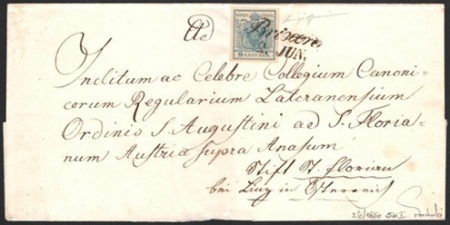 Brixen
JUN.
Inclitum ac Celebre Collegium Canoni-
corum Regularium Lateranensium
Ordinis S. Augustini ad S. Floria-
num Austriae supra Anasum
Stift St. Florian
bei Linz in Österreich